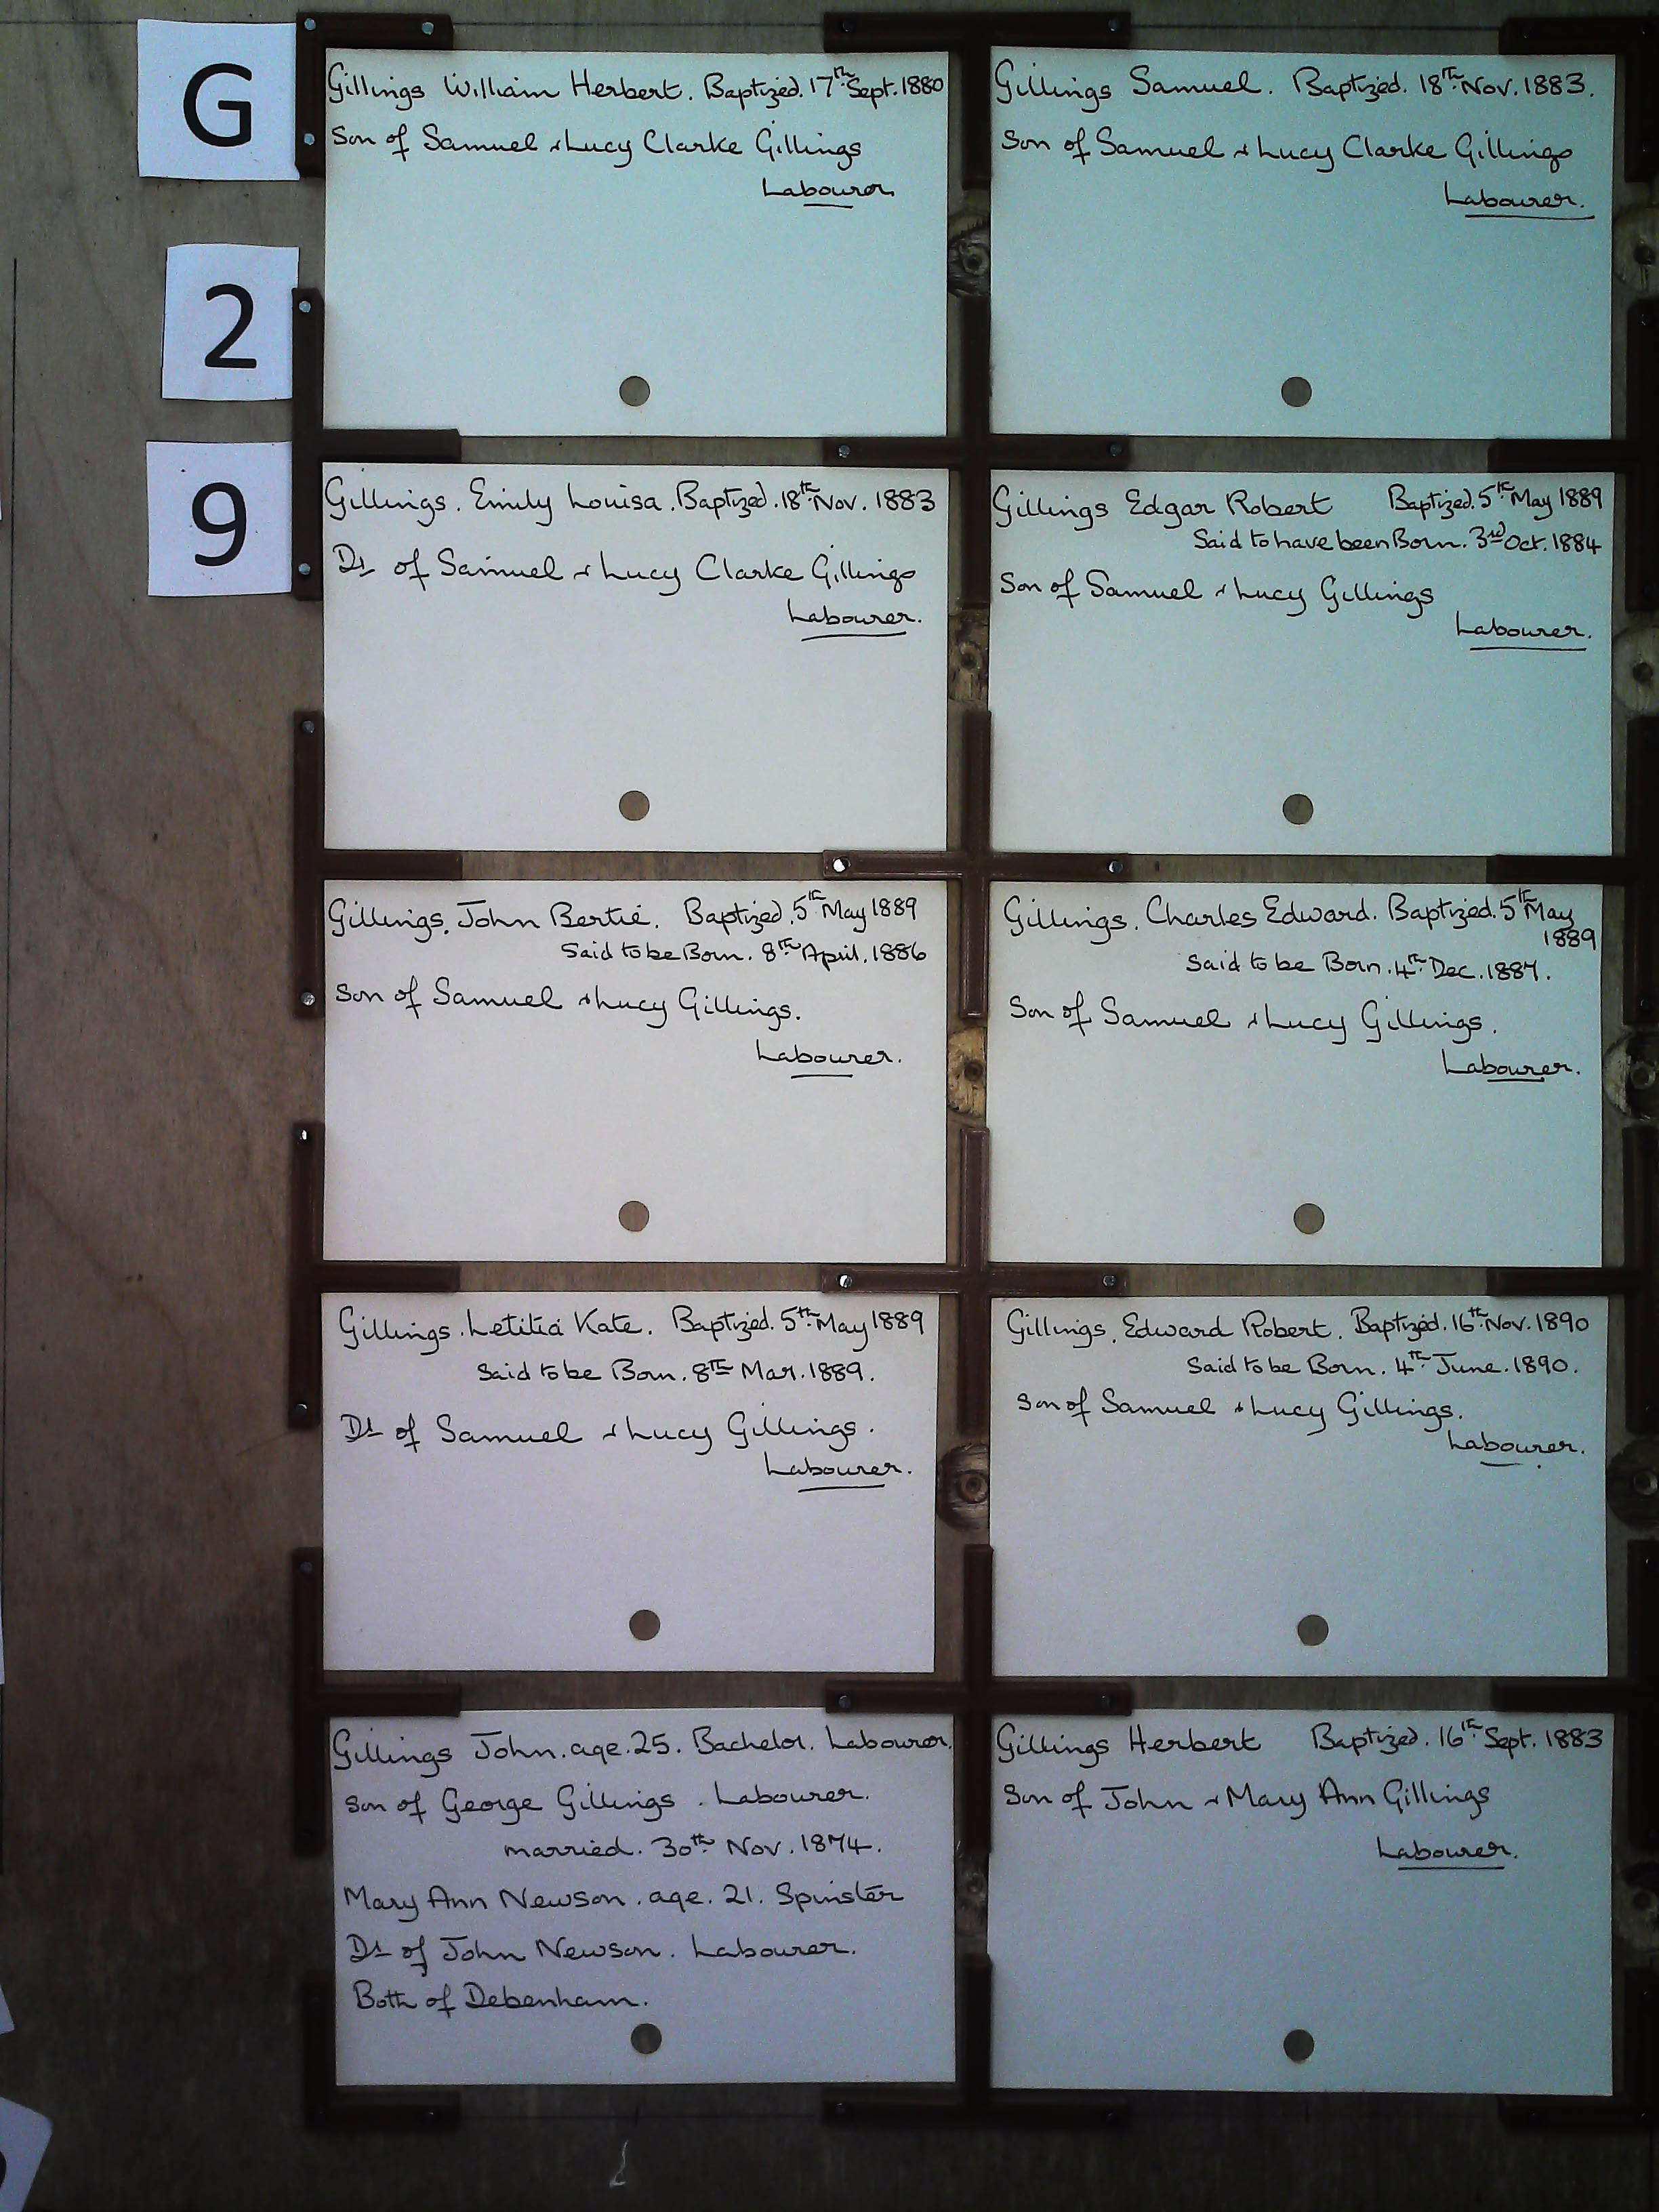 G
2
9
Gillings William Herbert. Baptized. 17th Sept. 1880
Son of Samuel & Lucy Clarke Gillings
Labourer
Gillings Samuel. Baptized. 18th Nov. 1883.
Son of Samuel & Lucy Clarke Gillings
Labourer.
Gillings. Emily Louisa. Baptized. 18th Nov. 1883
Dt of Samuel & Lucy Clarke Gillings
Labourer.
Gillings Edgar Robert Baptized. 5th May 1889
Said to have been Born. 3rd Oct. 1884
Son of Samuel & Lucy Gillings
Labourer.
Gillings. John Bertie. Baptized. 5th May 1889
Said to be Born. 8th April. 1886
Son of Samuel & Lucy Gillings.
Labourer.
Gillings. Charles Edward. Baptized. 5th May
1889
Said to be Born. 4th Dec. 1887.
Son of Samuel & Lucy Gillings.
Labourer.
Gillings. Letitia Kate. Baptized. 5th May 1889
Said to be Born. 8th Mar. 1889.
Dt of Samuel & Lucy Gillings.
Labourer.
Gillings. Edward Robert. Baptized. 16th Nov. 1890
Said to be Born. 4th June. 1890.
Son of Samuel & Lucy Gillings.
Labourer.
Gillings John. age. 25. Bachelor. Labourer.
Son of George Gillings. Labourer.
married. 30th Nov. 1874.
Mary Ann Newson. age. 21. Spinster
Dt of John Newson. Labourer.
Both of Debenham.
Gillings Herbert Baptized. 16th Sept. 1883
Son of John & Mary Ann Gillings
Labourer.